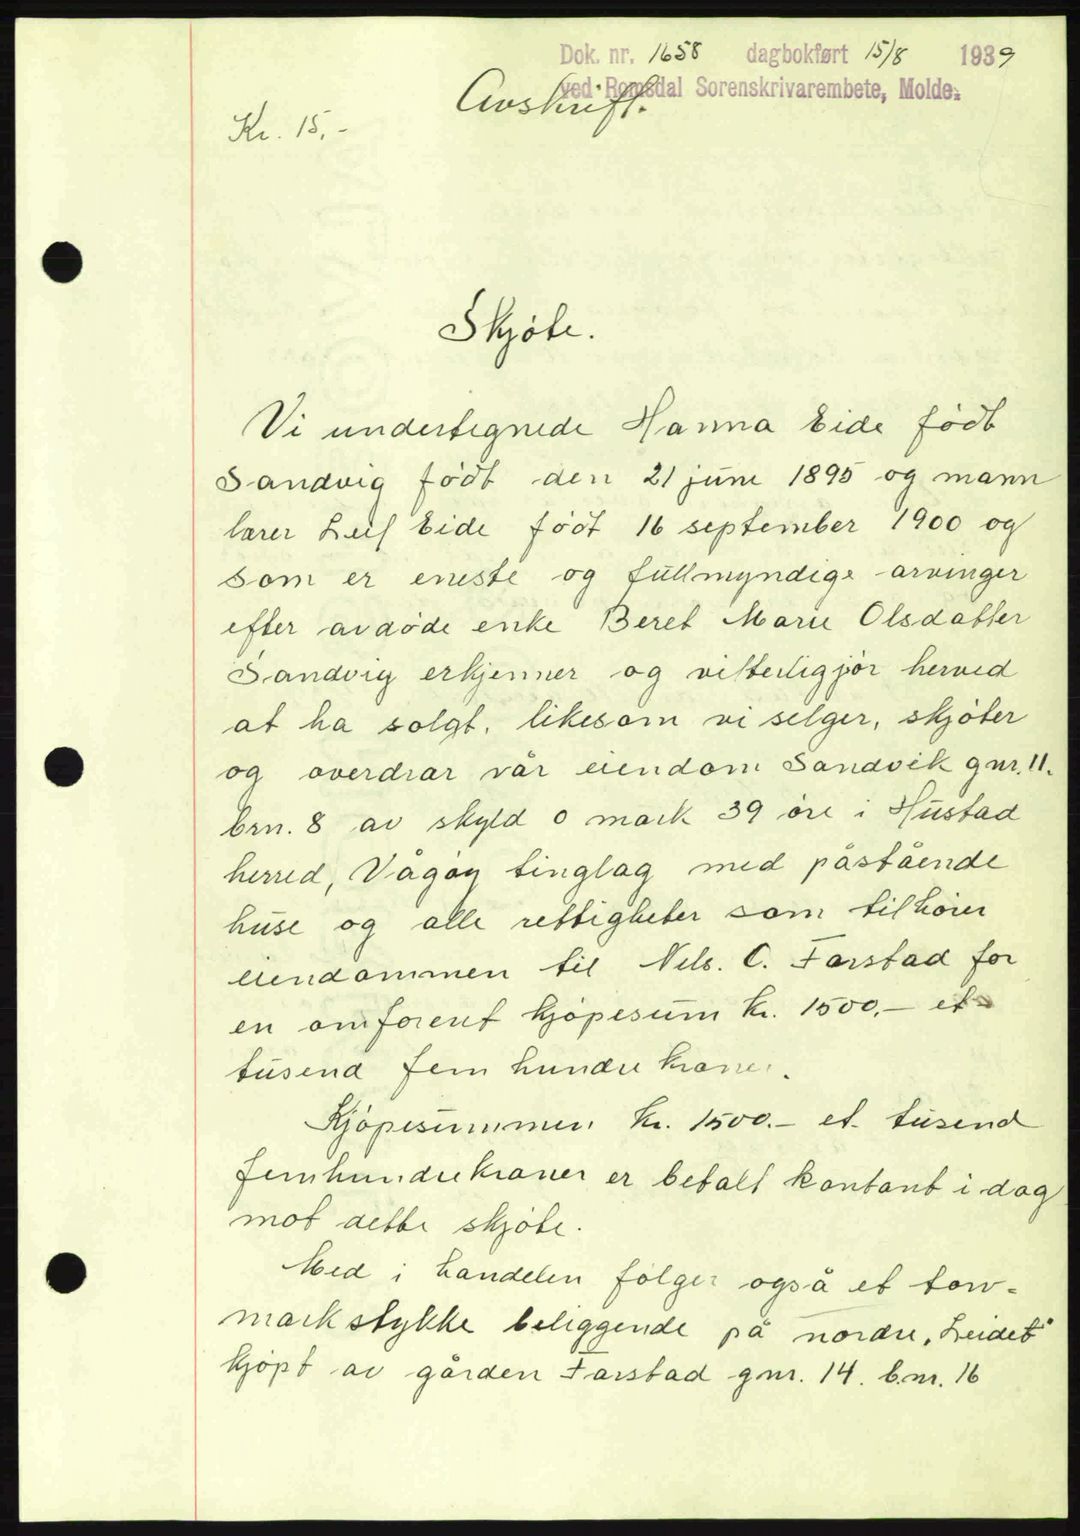 Dok. nr. 1658 dagbokført 15/8 1939
ved Romsdal Sorenskrivarembete, Molde.
Avskrift.
Kr. 15,-
Skjöte.
Vi undertegnede Hanna Eide född
Sandvig född den 21 juni 1895 og mann
lærer Leif Eide född 16 september 1900 og
som er eneste og fullmyndige arvinger
efter avdöde enke Beret Marie Olsdatter
Sandvig erkjenner og vitterliggjör herved
at ha solgt, likesom vi selger, skjöter
og overdrar vår eiendom Sandvik gnr. 11.
brn. 8 av skyld 0 mark 39 öre i Hustad
herred, Vågöy tinglag med påstående
huse og alle rettigheter som tilhörer
eiendommen til Nels. C. Farstad for
en omforent kjöpesum kr. 1500.- et
tusend fem hundre kroner.
Kjöpesummen kr. 1500.- et tusend
femhundrekroner er betalt kontant i dag
mot dette skjöte.
Med i handelen fölger også et torv-
markstykke beliggende på nordre „Leidet"
kjöpt av gården Farstad gnr. 14. b.nr. 16